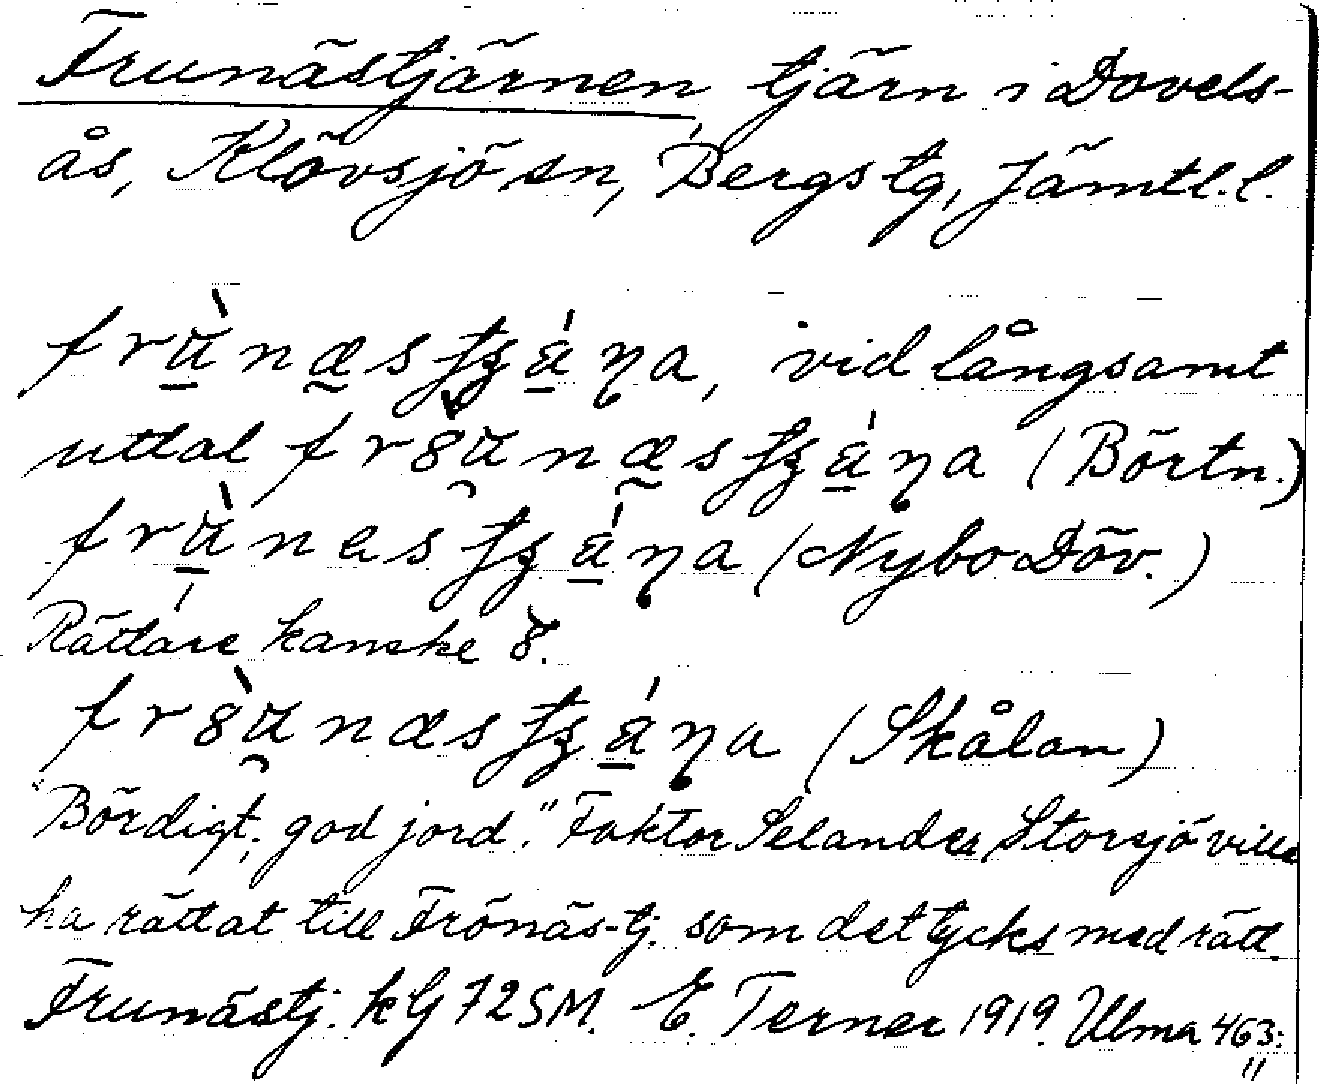 Frunästjärnen, tjärn i Dovels-
ås, Klövsjö sn, Bergs tg, Jämtl. l.
vid långsamt
uttal (Börtn.)
(Nybo Döv.)
Rättare kanske 8.
(Skålan)
"Bördigt, god jord." Faktor Selander, Storsjö ville
ha rättat till Frönäs-tj. som det tycks med rätt.
Frunästj. kG 72 SM. E. Terner 1919. Ulma 463:
11